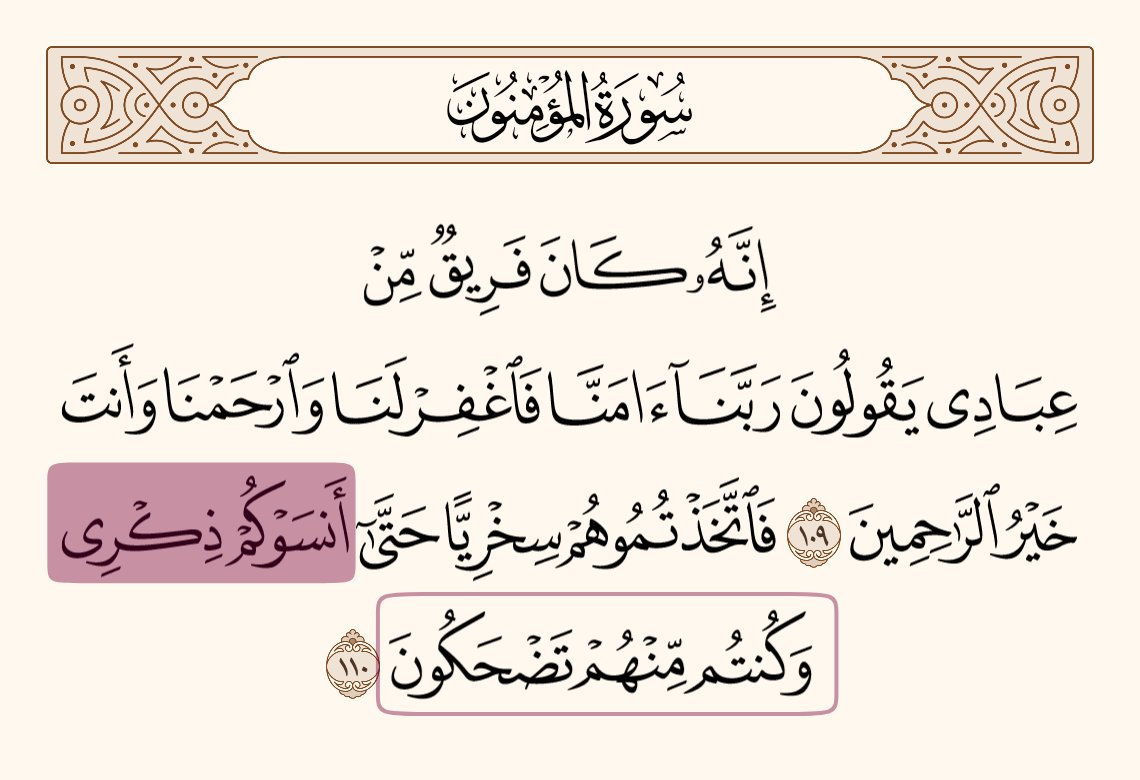 سُورَةُ المُؤۡمِنُونَ
إِنَّهُۥ كَانَ فَرِيقٞ مِّنۡ
عِبَادِي يَقُولُونَ رَبَّنَآ ءَامَنَّا فَٱغۡفِرۡ لَنَا وَٱرۡحَمۡنَا وَأَنتَ
خَيۡرُ ٱلرَّٰحِمِينَ ١٠٩ فَٱتَّخَذۡتُمُوهُمۡ سِخۡرِيًّا حَتَّىٰٓ أَنسَوۡكُمۡ ذِكۡرِي
وَكُنتُم مِّنۡهُمۡ تَضۡحَكُونَ ١١٠